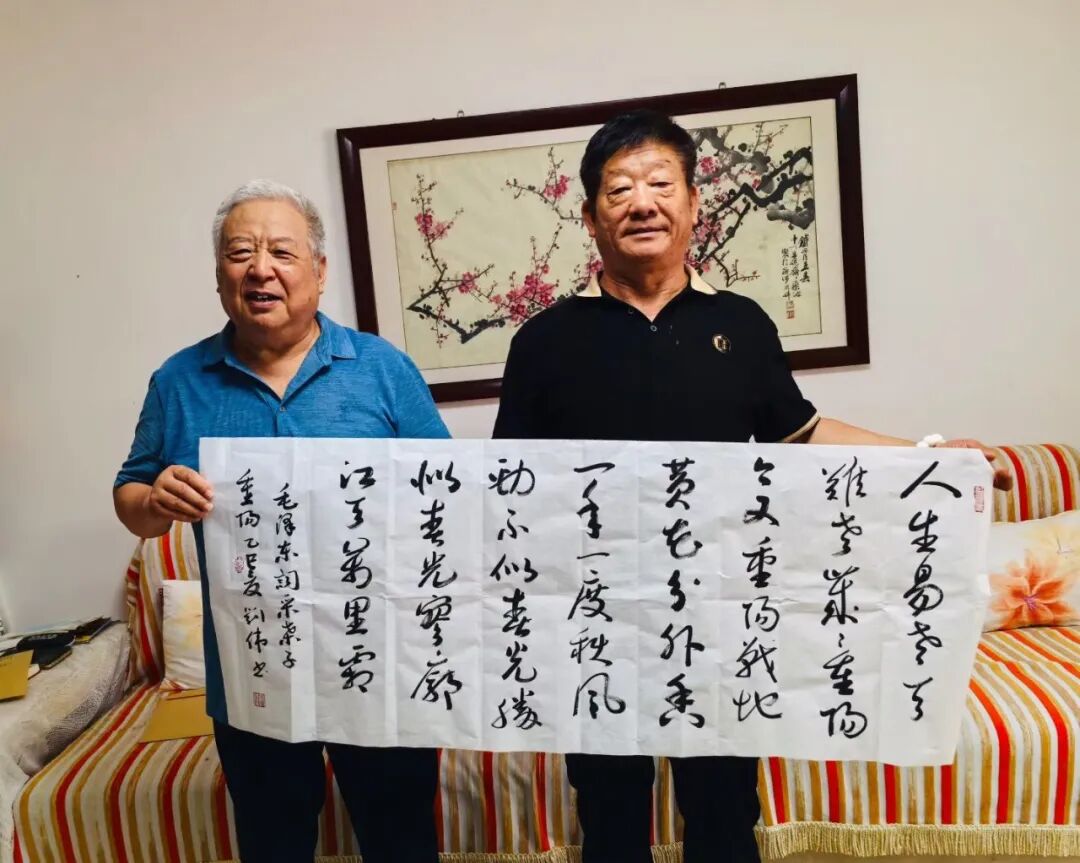 人生易老天
難老歲々重阳
今又重阳战地
黄花分外香
一年一度秋风
劲不似春光勝
似春光寥廓
江天萬里霜
毛泽东词采桑子
重阳乙巳夏刘伟书